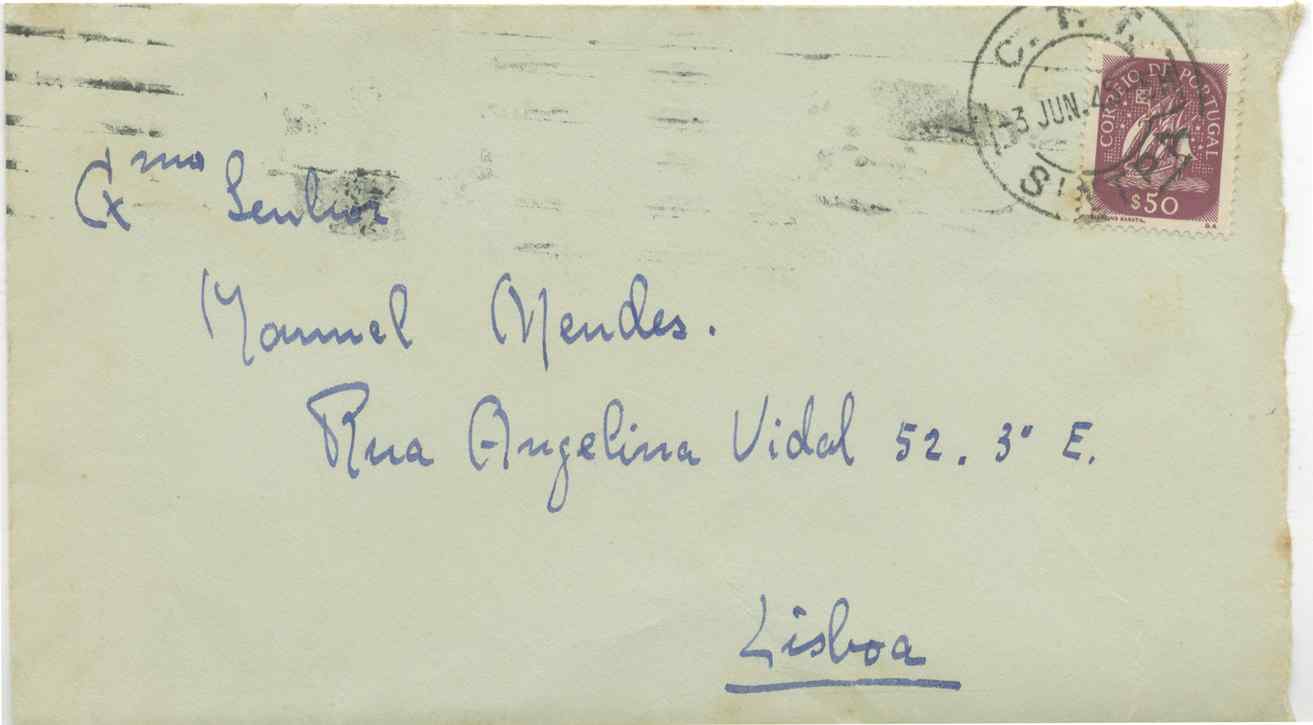 C.T.T.
3 JUN. 4
CORREIO DE PORTUGAL
$50
Exmo Senhor
Manuel Mendes.
Rua Angelina Vidal 52. 3º E.
Lisboa